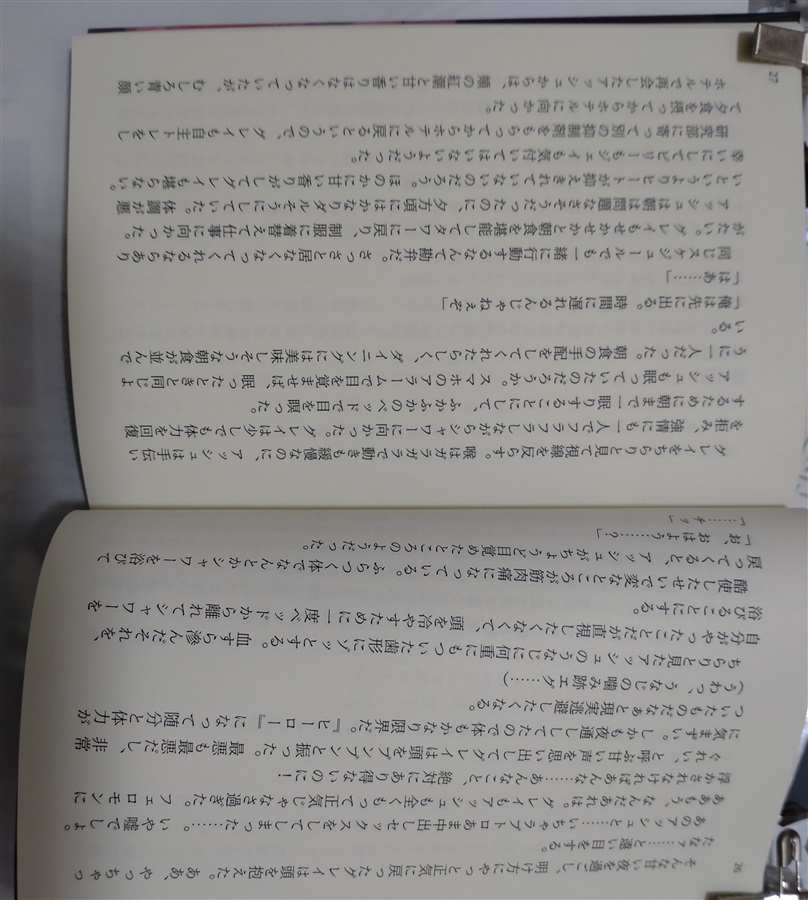 26
そんな甘い夜を過ごし、明け方にやっと正気に戻ったグレイは頭を抱えた。ああ、やっちゃっ
たなァ……と遠い目をする。
あのアッシュと……いちゃラブトロあま中出しセックスをしてしまった……。いや嘘でしょ。
ああもう、なんだあれは。グレイもアッシュも全くもって正気じゃなさ過ぎた。フェロモンに
浮かされなければあんな……あ、あんなこと、絶対にあり得ないのに！
ぐれい、と呼ぶ甘い声を思い出してグレイは頭をブンブンと振った。最悪も最悪だし、非常
に気まずい。しかも夜通ししてたので体もかなり限界だ。『ヒーロー』になって随分と体力が
ついたものだなあと現実逃避したくなる。
（うわっ、うなじの噛み跡エグ……）
ちらりと見たアッシュのうなじに何重にもついた歯形にゾッとする。血すら滲んだそれを、
自分がやったことだが直視したくなくて、頭を冷やすために一度ベッドから離れてシャワーを
浴びることにする。
酷使したせいで変なところが筋肉痛になっている。ふらつく体でなんとかシャワーを浴びて
戻ってくると、アッシュがちょうど目覚めたところのようだった。
「お、おはよう……？」
「……チッ」
グレイをちらりと見て視線を反らす。喉はガラガラで動きも緩慢なのに、アッシュは手伝い
を拒み、強情にも一人でフラフラしながらシャワーに向かった。グレイは少しでも体力を回復
するために朝まで一眠りすることにして、ふかふかのベッドで目を瞑った。
アッシュも眠っていたのだろうか。スマホのアラームで目を覚ませば、眠ったときと同じよ
うに一人だった。朝食の手配をしてくれたらしく、ダイニングには美味しそうな朝食が並んで
いる。
「俺は先に出る。時間に遅れるんじゃねえぞ」
「はあ……」
同じスケジュールでも一緒に行動するなんて勘弁だ。さっさと居なくなってくれるならあり
がたい。グレイもせかせかと朝食を堪能してタワーに戻り、制服に着替えて仕事に向かった。
アッシュは朝は問題なさそうだったのに、夕方頃にはかなりダルそうにしていた。体調が悪
いというよりヒートが抑えきれていないのだろう。ほのかに甘い香りがしてグレイも堪らない。
幸いにしてビリーもジェイも気付いてはいないようだった。
研究部に寄って別の抑制剤をもらってからホテルに戻るというので、グレイも自主トレをし
て夕食を摂ってからホテルに向かった。
ホテルで再会したアッシュからは、頬の紅潮と甘い香りはなくなっていたが、むしろ青い顔
27